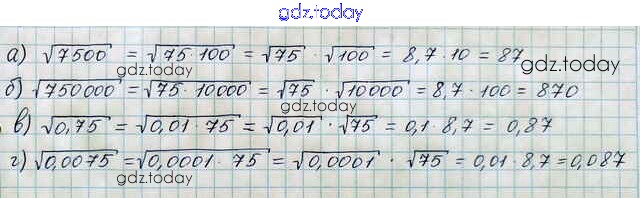 gdz.today
а) √7500 = √75·100 = √75 · √100 = 8,7·10 = 87
gdz.today
gdz.today
б) √750000 = √75·10000 = √75 · √10000 = 8,7·100 = 870
gdz.today
в) √0,75 = √0,01·75 = √0,01 · √75 = 0,1·8,7 = 0,87
г) √0,0075 = √0,0001·75 = √0,0001 · √75 = 0,01·8,7 = 0,087
gdz.today